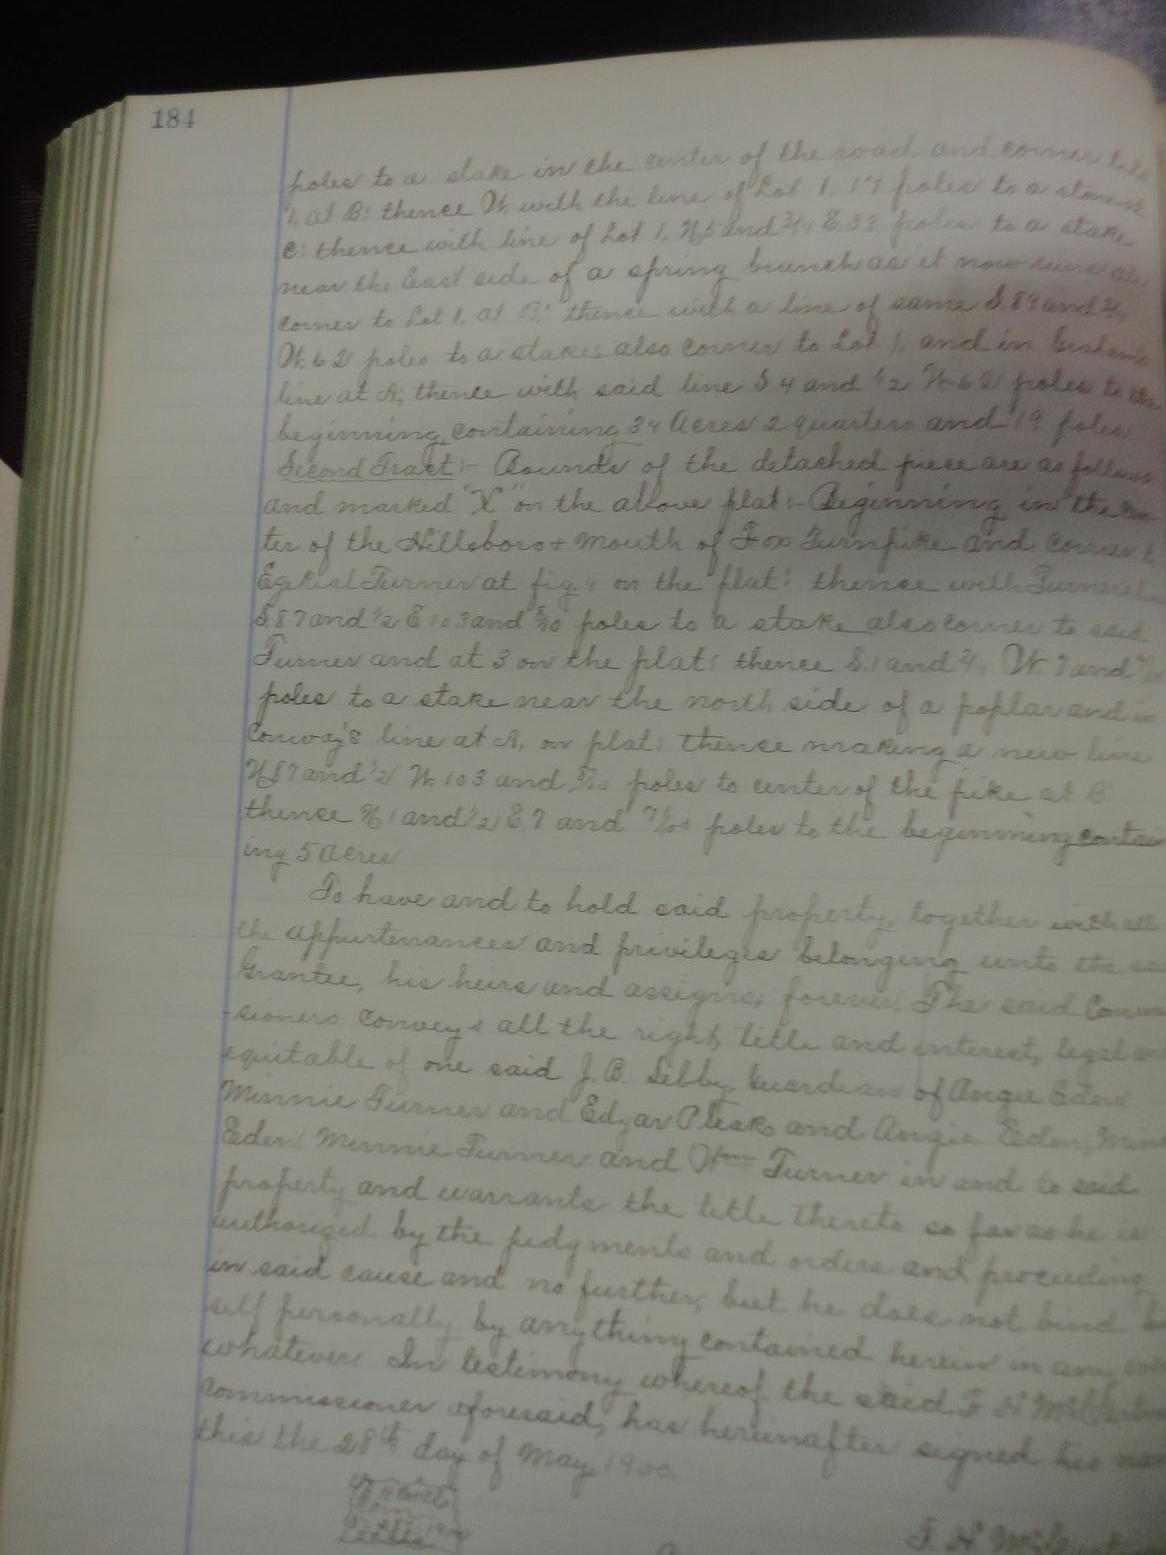 184
poles to a stake in the center of the road and corner
1, at B: thence N. with the line of Lot 1. 17 poles to a stone
C: thence with line of Lot 1, N 5 and 3/4 E. 33 poles to a stake
near the East side of a spring branch as it now runs
corner to Lot 1. at thence with a line of same S. 89 and
W. 62 poles to a stake: also corner to Lot 1, and in
line at A; thence with said line S 4 and 1/2 W 62 poles to the
beginning, containing 34 Acres 2 quarters and 19 poles
Second Tract:- Bounds of the detached piece are as follows
and marked "X" on the above plat:- Beginning in the
ter of the Hillsboro + Mouth of Fox Turnpike and corner
Ezekial Turner at fig. 4 on the plat: thence with Turner's
S. 87 and 1/2 E 103 and poles to a stake also corner to said
Turner and at 3 on the plat: thence S. 1 and W. 7 and
poles to a stake near the north side of a poplar and in
Conway's line at A, on plat: thence making a new line
N 87 and 1/2 W. 103 and poles to center of the pike at
thence N 1 and 1/2 E. 7 and poles to the beginning contain
ing 5 Acres
To have and to hold said property, together with all
the appurtenances and privileges belonging unto the
Grantee, his heirs and assigns, forever. The said
-sioners conveys all the right, title and interest, legal
equitable of one said J. B. Libby, Guardian of Angie Eden
Minnie Turner and Edgar Pleak and Angie Eden,
Eden, Minnie Turner and Wm Turner in and to said
property and warrants the title thereto so far as he is
authorized by the judgments and orders and proceeding
in said cause and no further, but he does not bind
self personally by anything contained herein in any
whatever. In testimony whereof the said F H
commissioner aforesaid, has hereinafter signed his
this the 28th day of May 1900.
F. H